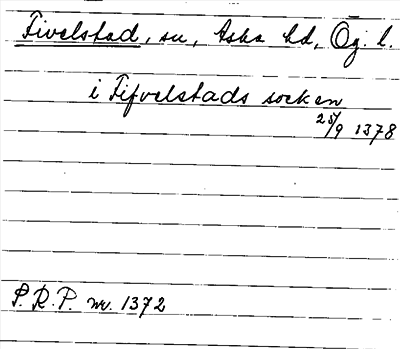 Fivelstad, sn, Aska hd, Ög. l.
i Fifvelstads socken
25/9 1378
P.R.P. nr. 1372